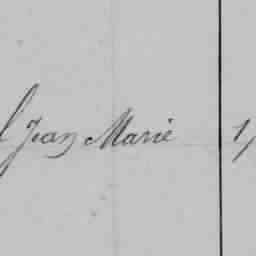 Jean Marie 1,